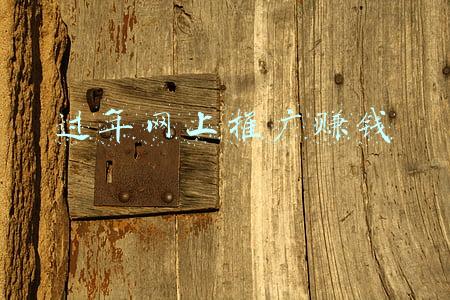 过年网上推广赚钱